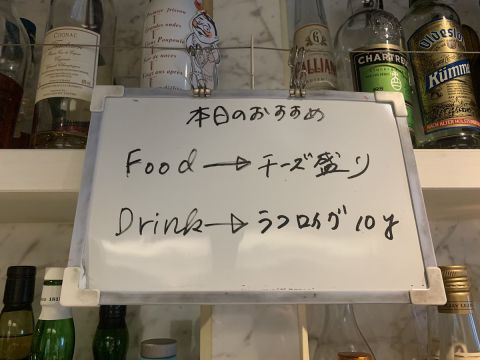 COGNAC
CHARTREUSE
Kümmel
本日のおすすめ
Food → チーズ盛り
Drink → ラフロイグ 10y